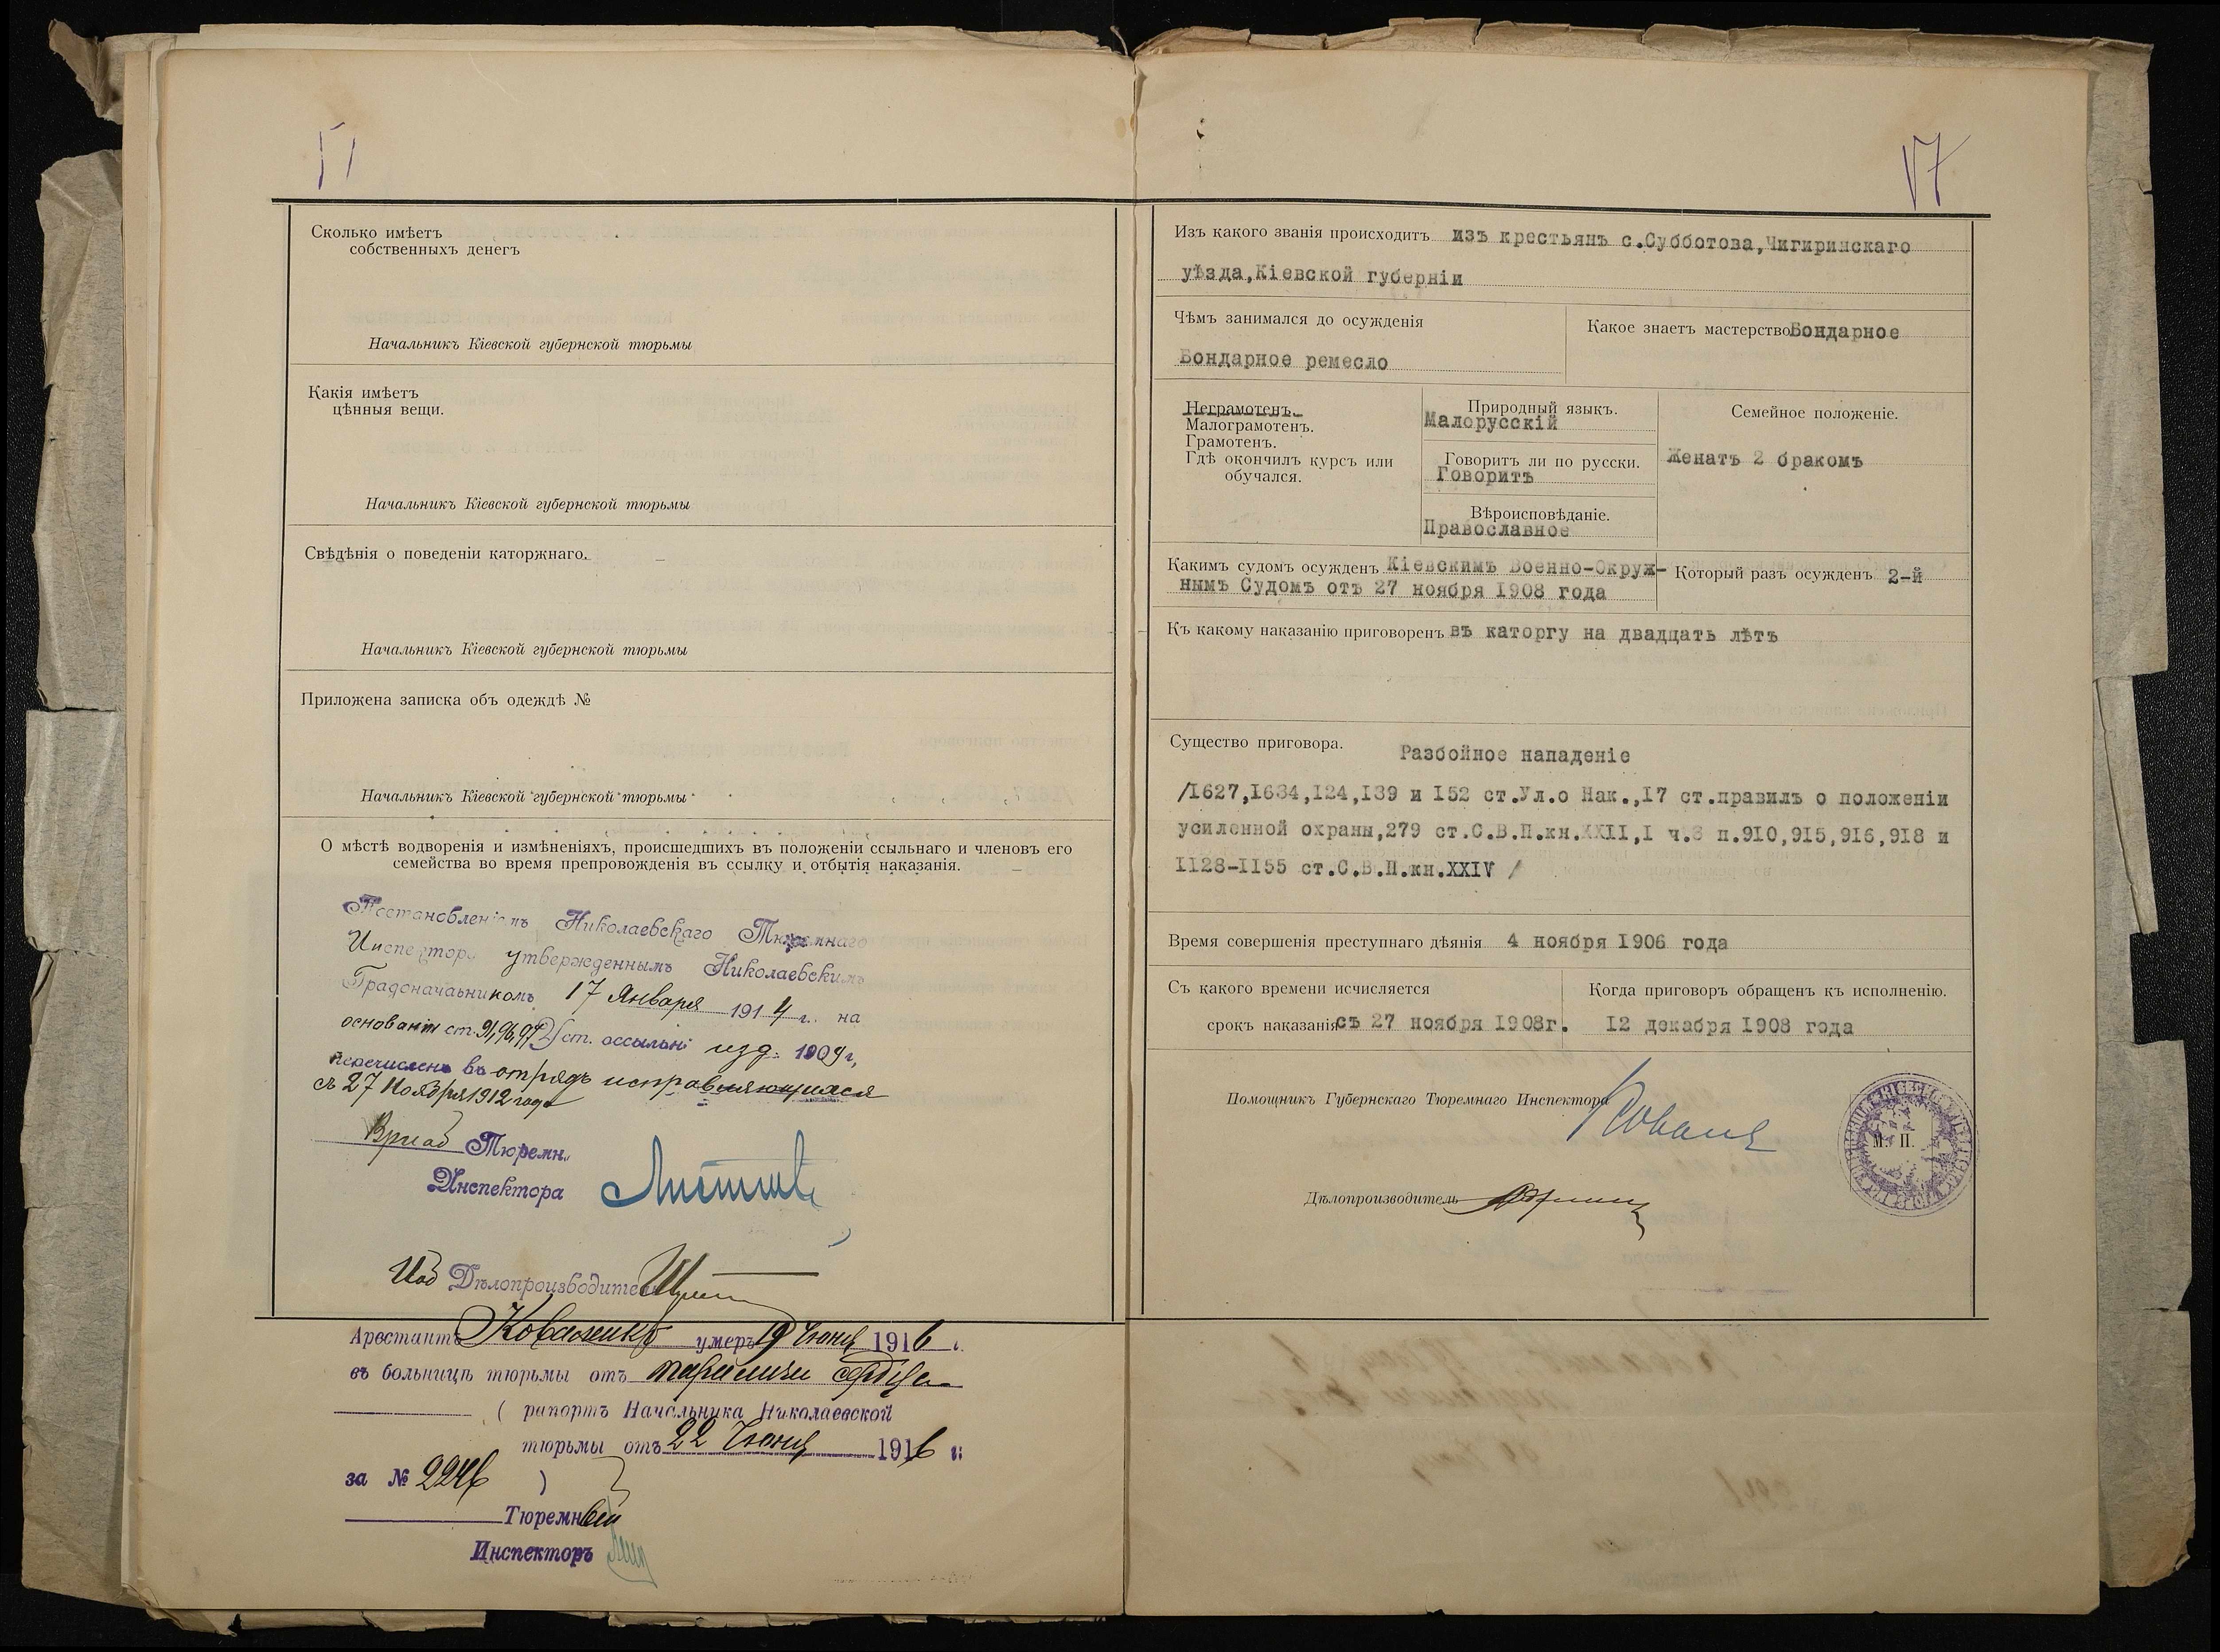 Сколько имѣетъ
собственныхъ денегъ
Начальникъ Кіевской губернской тюрьмы
Какія имѣетъ
цѣнныя вещи.
Начальникъ Кіевской губернской тюрьмы
Свѣдѣнія о поведеніи каторжнаго.
Начальникъ Кіевской губернской тюрьмы
Приложена записка объ одеждѣ №
Начальникъ Кіевской губернской тюрьмы
О мѣстѣ водворенія и измѣненіяхъ, происшедшихъ въ положеніи ссыльнаго и членовъ его
семейства во время препровожденія въ ссылку и отбытія наказанія.
Постановленіемъ Николаевскаго Тюремнаго
Инспектора утвержденнымъ Николаевскимъ
Градоначальникомъ 17 Января 1914 г. на
основаніи ст. 91, 96, 97 Уст. о ссыльн. изд. 1909 г,
перечисленъ въ отрядъ исправляющихся
съ 27 Ноября 1912 года
Вриад Тюремн.
Инспектора
Иод Дѣлопроизводителя
Арестантъ Коваленко умеръ 19 Іюня 1916 г.
въ больницѣ тюрьмы отъ паралича сердца
( рапортъ Начальника Николаевской
тюрьмы отъ 22 Іюня 1916 г.
за № 2246 )
Тюремный
Инспекторъ
17
Изъ какого званія происходитъ изъ крестьянъ с.Субботова,Чигиринскаго
уѣзда,Кіевской губерніи
Чѣмъ занимался до осужденія
Бондарное ремесло
Какое знаетъ мастерство Бондарное
Неграмотенъ.
Малограмотенъ.
Грамотенъ.
Гдѣ окончилъ курсъ или
обучался.
Природный языкъ.
Малорусскій
Говоритъ ли по русски.
Говоритъ
Вѣроисповѣданіе.
Православное
Семейное положеніе.
Женатъ 2 бракомъ
Какимъ судомъ осужденъ Кіевскимъ Военно-Окруж-
нымъ Судомъ отъ 27 ноября I908 года
Который разъ осужденъ 2-й
Къ какому наказанію приговоренъ въ каторгу на двадцать лѣтъ
Существо приговора.
Разбойное нападеніе
/I627,I634,I24,I39 и I52 ст.Ул.о Нак.,I7 ст.правилъ о положеніи
усиленной охраны,279 ст.С.В.П.кн.XXII,I ч.3 п.9I0,9I5,9I6,9I8 и
II28-II55 ст.С.В.П.кн.XXIV /
Время совершенія преступнаго дѣянія 4 ноября I906 года
Съ какого времени исчисляется
срокъ наказанія съ 27 ноября I908г.
Когда приговоръ обращенъ къ исполненію.
I2 декабря I908 года
Помощникъ Губернскаго Тюремнаго Инспектора
М. П.
Дѣлопроизводитель